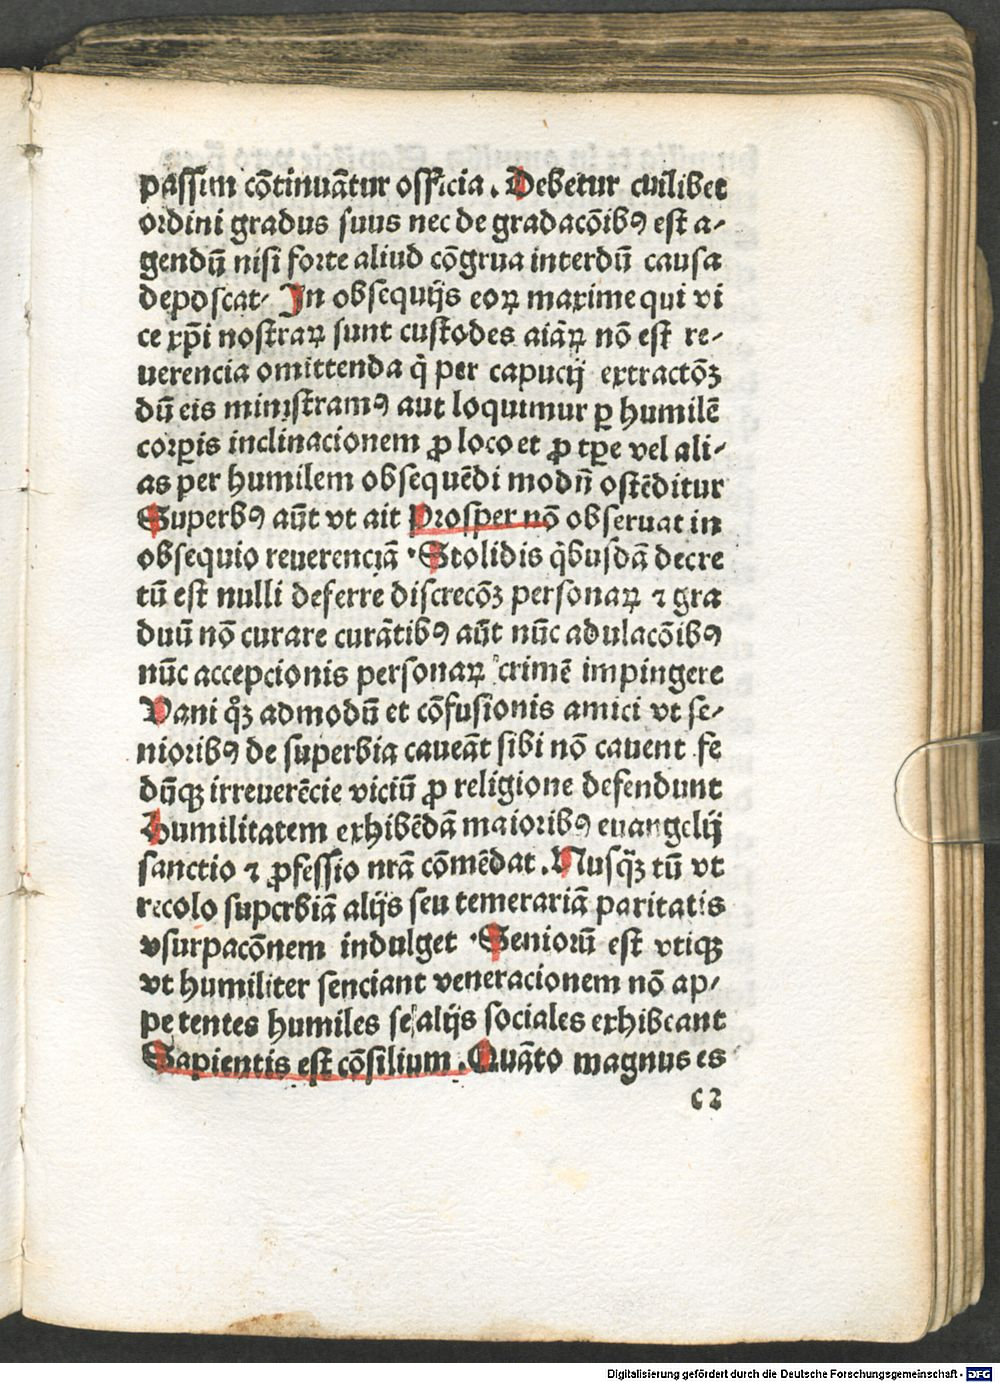 passim cōtinuātur officia. Debetur cuilibet
ordini gradus suus nec de gradacōibꝰ est a-
gendū nisi forte aliud cōgrua interdū causa
deposcat. In obsequijs eoꝝ maxime qui vi
ce xp̄i nostraꝝ sunt custodes aīaꝝ nō est re-
uerencia omittenda q̄ per capucij extractōꝫ
dū eis ministramꝰ aut loquimur ꝑ humilē
corꝑis inclinacionem ꝓ loco et ꝓ tꝑe vel ali-
as per humilem obsequēdi modū ostēditur
Superbꝰ aūt vt ait Prosper nō obseruat in
obsequio reuerenciā. Stolidis q̇busdā decre
tū est nulli deferre discrecōꝫ personaꝝ ⁊ gra
duū nō curare curātibꝰ aūt nūc adulacōibꝰ
nūc accepcionis personaꝝ crimē impingere
Vani qͦꝫ admodū et cōfusionis amici vt se-
nioribꝰ de superbia caueāt sibi nō cauent fe
dūqꝫ irreuerēcie viciū ꝓ religione defendunt
Humilitatem exhibēdā maioribꝰ euangelij
sanctio ⁊ ꝓfessio nrā cōmēdat. Nusq̄ꝫ tū vt
recolo superbiā alijs seu temerariā paritatis
vsurpacōnem indulget. Seniorū est vtiqꝫ
vt humiliter senciant veneracionem nō ap-
petentes humiles se alijs sociales exhibeant
Sapientis est cōsilium. Quāto magnus es
c2
Digitalisierung gefördert durch die Deutsche Forschungsgemeinschaft - DFG